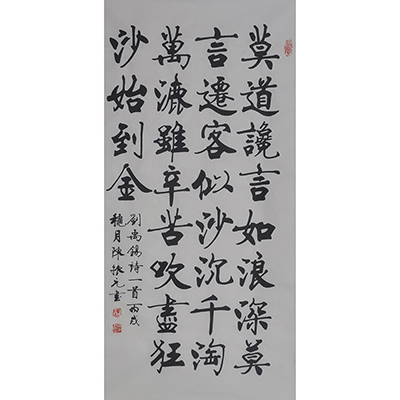 莫道讒言如浪深莫
言遷客似沙沉千淘
萬漉雖辛苦吹盡狂
沙始到金
劉禹錫詩一首丙戌
月陳振元書